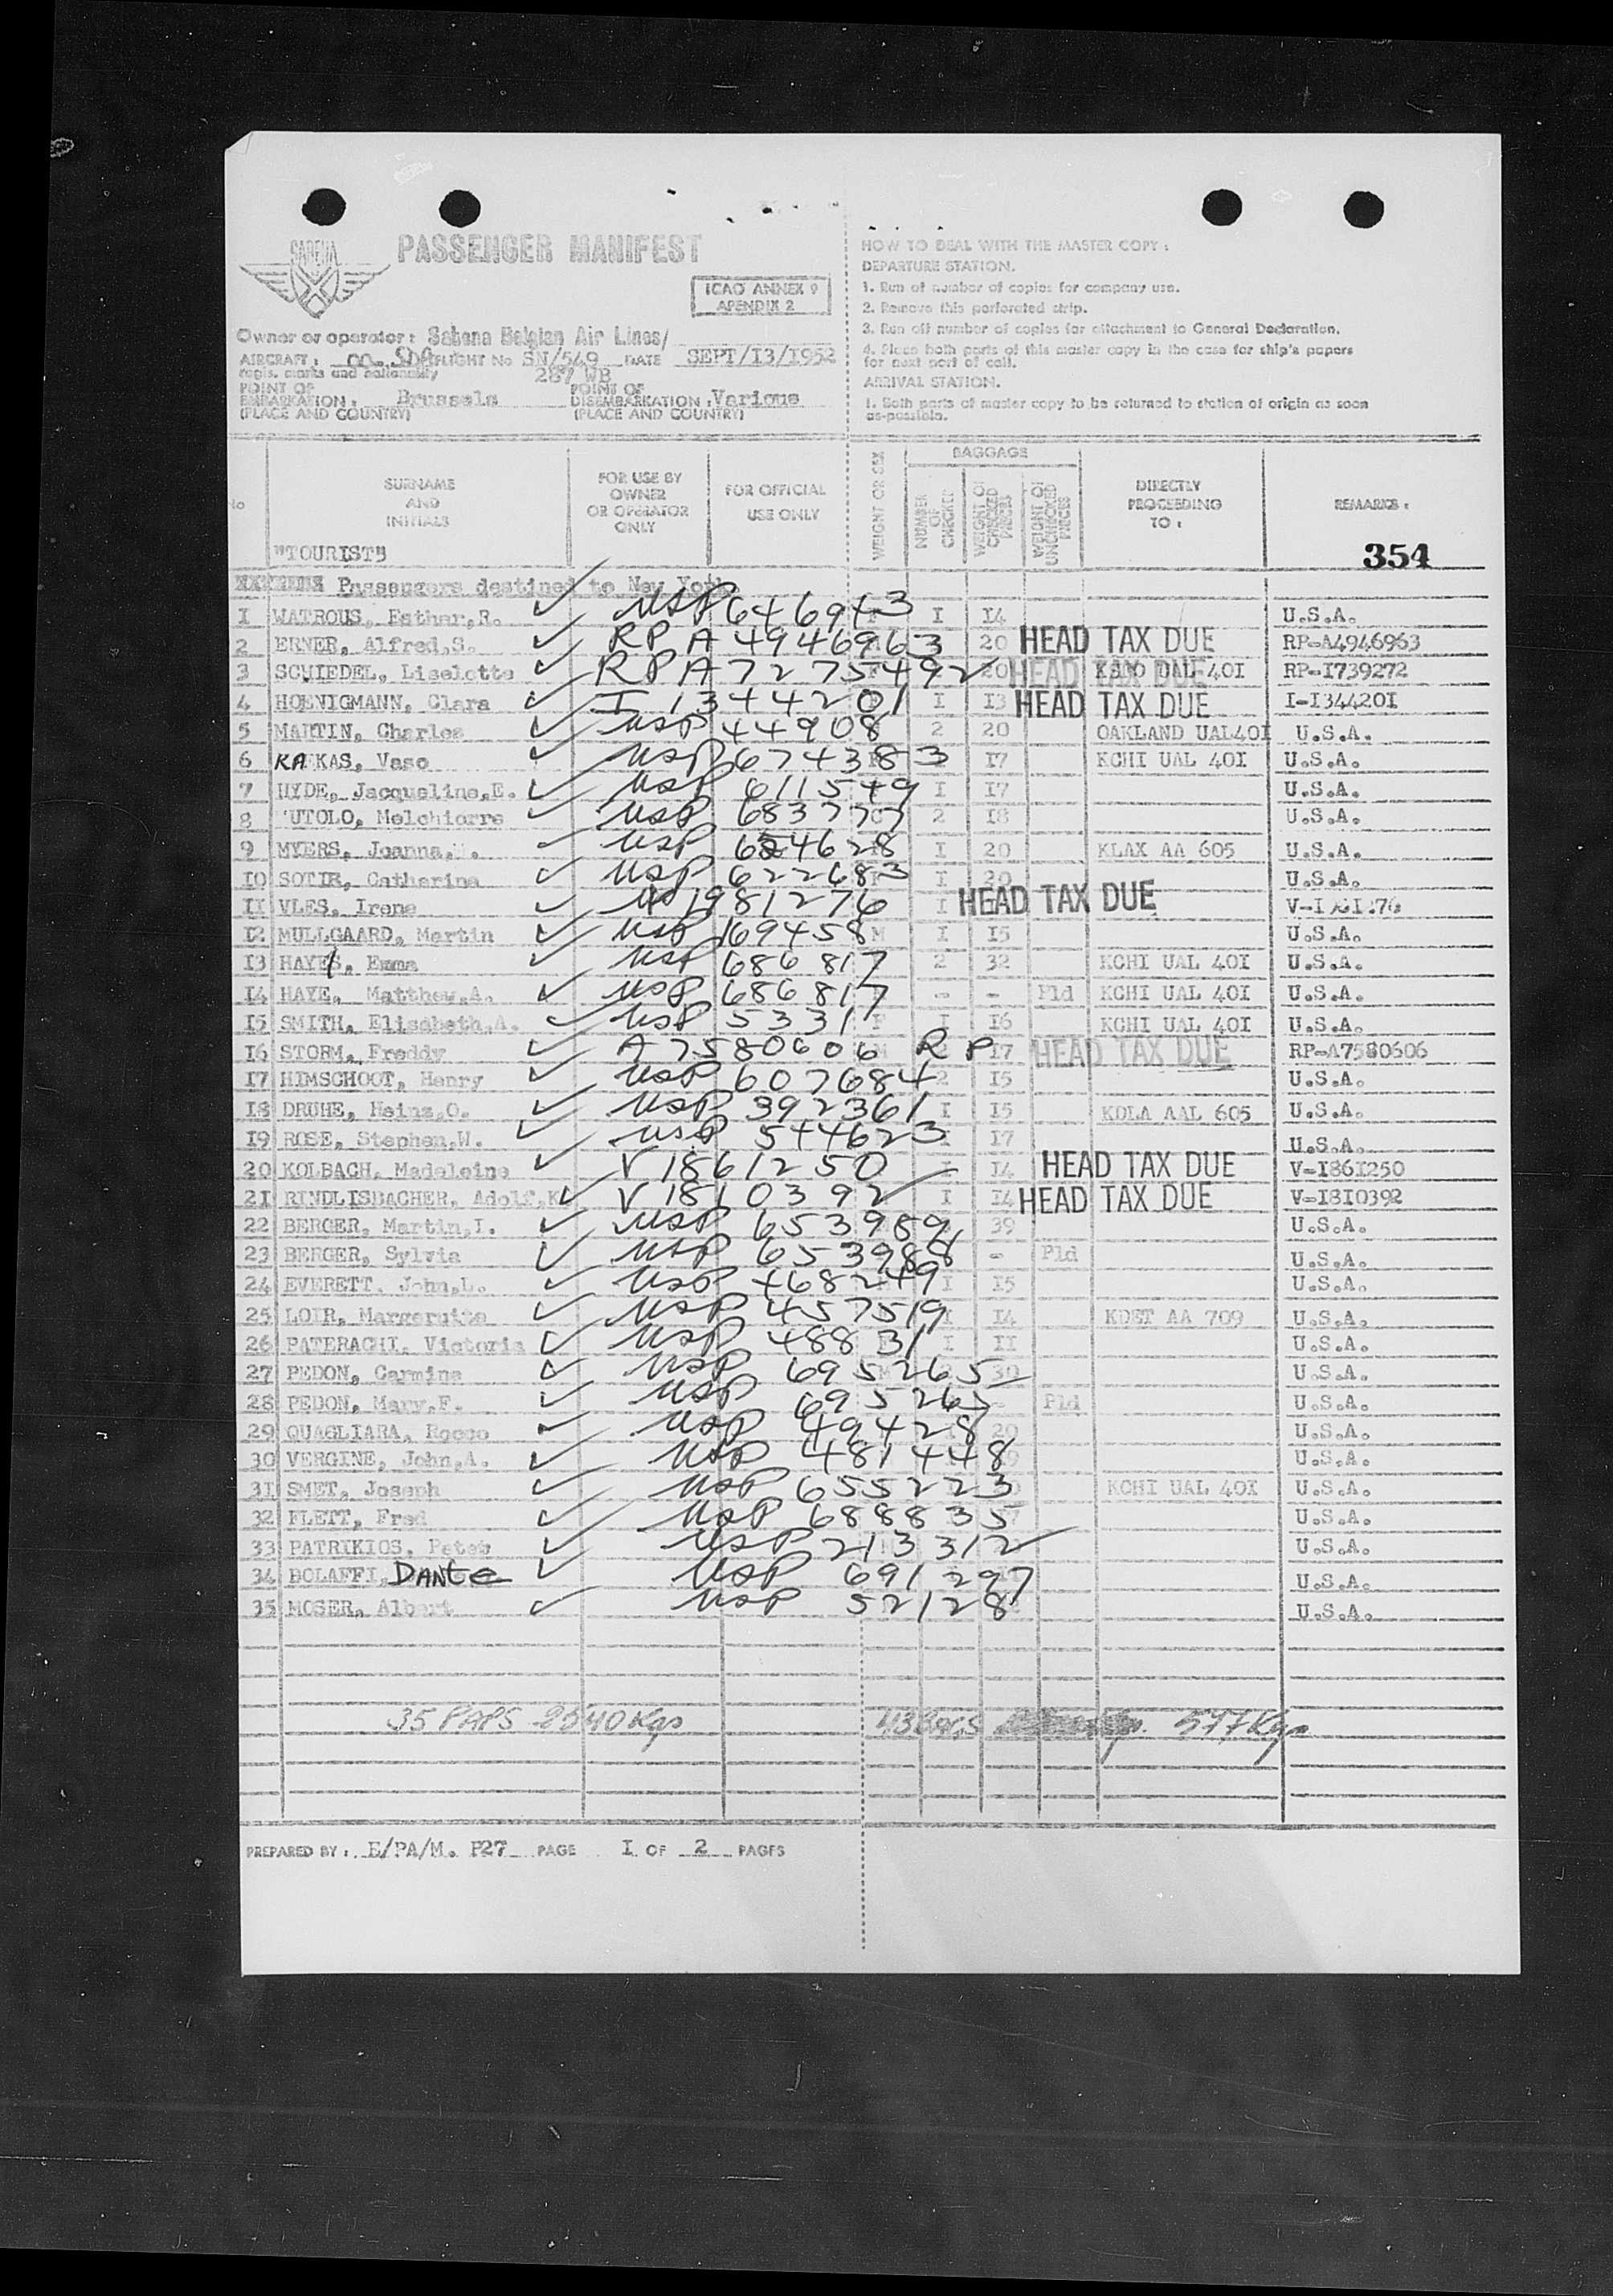 SABENA
PASSENGER MANIFEST
ICAO ANNEX 9
APENDIX 2
Owner or operator: Sabena Belgian Air Lines/
AIRCRAFT: OO-SDA FLIGHT No SN/549 DATE SEPT/I3/I952
regis. marks and nationality 287 WB
POINT OF EMBARKATION: Brussels POINT OF DISEMBARKATION: Various
(PLACE AND COUNTRY) (PLACE AND COUNTRY)
HOW TO DEAL WITH THE MASTER COPY:
DEPARTURE STATION.
1. Run of number of copies for company use.
2. Remove this perforated strip.
3. Run off number of copies for attachment to General Declaration.
4. Place both parts of this master copy in the case for ship's papers
for next port of call.
ARRIVAL STATION.
1. Both parts of master copy to be returned to station of origin as soon
as possible.
No SURNAME AND INITIALS FOR USE BY OWNER OR OPERATOR ONLY FOR OFFICIAL USE ONLY WEIGHT OR SEX BAGGAGE NUMBER OF CHECKED WEIGHT OF CHECKED PIECES WEIGHT OF UNCHECKED PIECES DIRECTLY PROCEEDING TO: REMARKS:
"TOURIST" 354
Passengers destined to New York
I WATROUS, Esther,R. USP 646943 I I4 U.S.A.
2 ERNER, Alfred,S. RP A 4946963 20 HEAD TAX DUE RP-A4946963
3 SCHIEDEL, Liselotte RP A 7275492 20 HEAD TAX DUE UAL 40I RP-I739272
4 HOENIGMANN, Clara I 1344201 I I3 HEAD TAX DUE I-I34420I
5 MARTIN, Charles USP 44908 2 20 OAKLAND UAL40I U.S.A.
6 KARKAS, Vaso USP 674383 I7 KCHI UAL 40I U.S.A.
7 HYDE, Jacqueline,E. USP 611549 I I7 U.S.A.
8 UTOLO, Melchiorre USP 683777 2 I8 U.S.A.
9 MYERS, Joanna USP 624628 I 20 KLAX AA 605 U.S.A.
IO SOTIR, Catherine USP 622683 I 20 U.S.A.
II VLES, Irene 1981276 I HEAD TAX DUE
I2 MULLGAARD, Martin USP 169458 M I I5 U.S.A.
I3 HAYES, Emma USP 686817 2 32 KCHI UAL 40I U.S.A.
I4 HAYE, Matthew,A. USP 686817 - - Pld KCHI UAL 40I U.S.A.
I5 SMITH, Elisabeth,A. USP 5331 F I I6 KCHI UAL 40I U.S.A.
I6 STORM, Freddy A7580606 RP I7 HEAD TAX DUE RP-A7580606
I7 HIMSCHOOT, Henry USP 607684 2 I5 U.S.A.
I8 DRUHE, Heinz,O. USP 392361 I I5 KDLA AAL 605 U.S.A.
I9 ROSE, Stephen,W. USP 544623 I7 U.S.A.
20 KOLBACH, Madeleine V 1861250 I4 HEAD TAX DUE V-I86I250
2I RINDLISBACHER, Adolf,K V 1810392 I I4 HEAD TAX DUE V-I8I0392
22 BERGER, Martin,I. USP 653989 39 U.S.A.
23 BERGER, Sylvia USP 653988 - Pld U.S.A.
24 EVERETT, John,L. USP 468249 I I5 U.S.A.
25 LOIR, Margeruitte USP 457519 I I4 KDET AA 709 U.S.A.
26 PATERACHI, Victoria USP 48831 I II U.S.A.
27 PEDON, Carmine USP 695265 30 U.S.A.
28 PEDON, Mary,F. USP 695265 - Pld U.S.A.
29 QUAGLIARA, Rocco USP 49428 20 U.S.A.
30 VERGINE, John,A. USP 481448 U.S.A.
3I SMET, Joseph USP 655223 KCHI UAL 40I U.S.A.
32 FLETT, Fred USP 688835 U.S.A.
33 PATRIKIOS, Peter USP 213312 U.S.A.
34 BOLAFFI, DANte USP 691297 U.S.A.
35 MOSER, Albert USP 52128 U.S.A.
35 PAPS 2540 Kgs 43 Bags 577 Kgs
PREPARED BY: E/PA/M. P27 PAGE I OF 2 PAGES